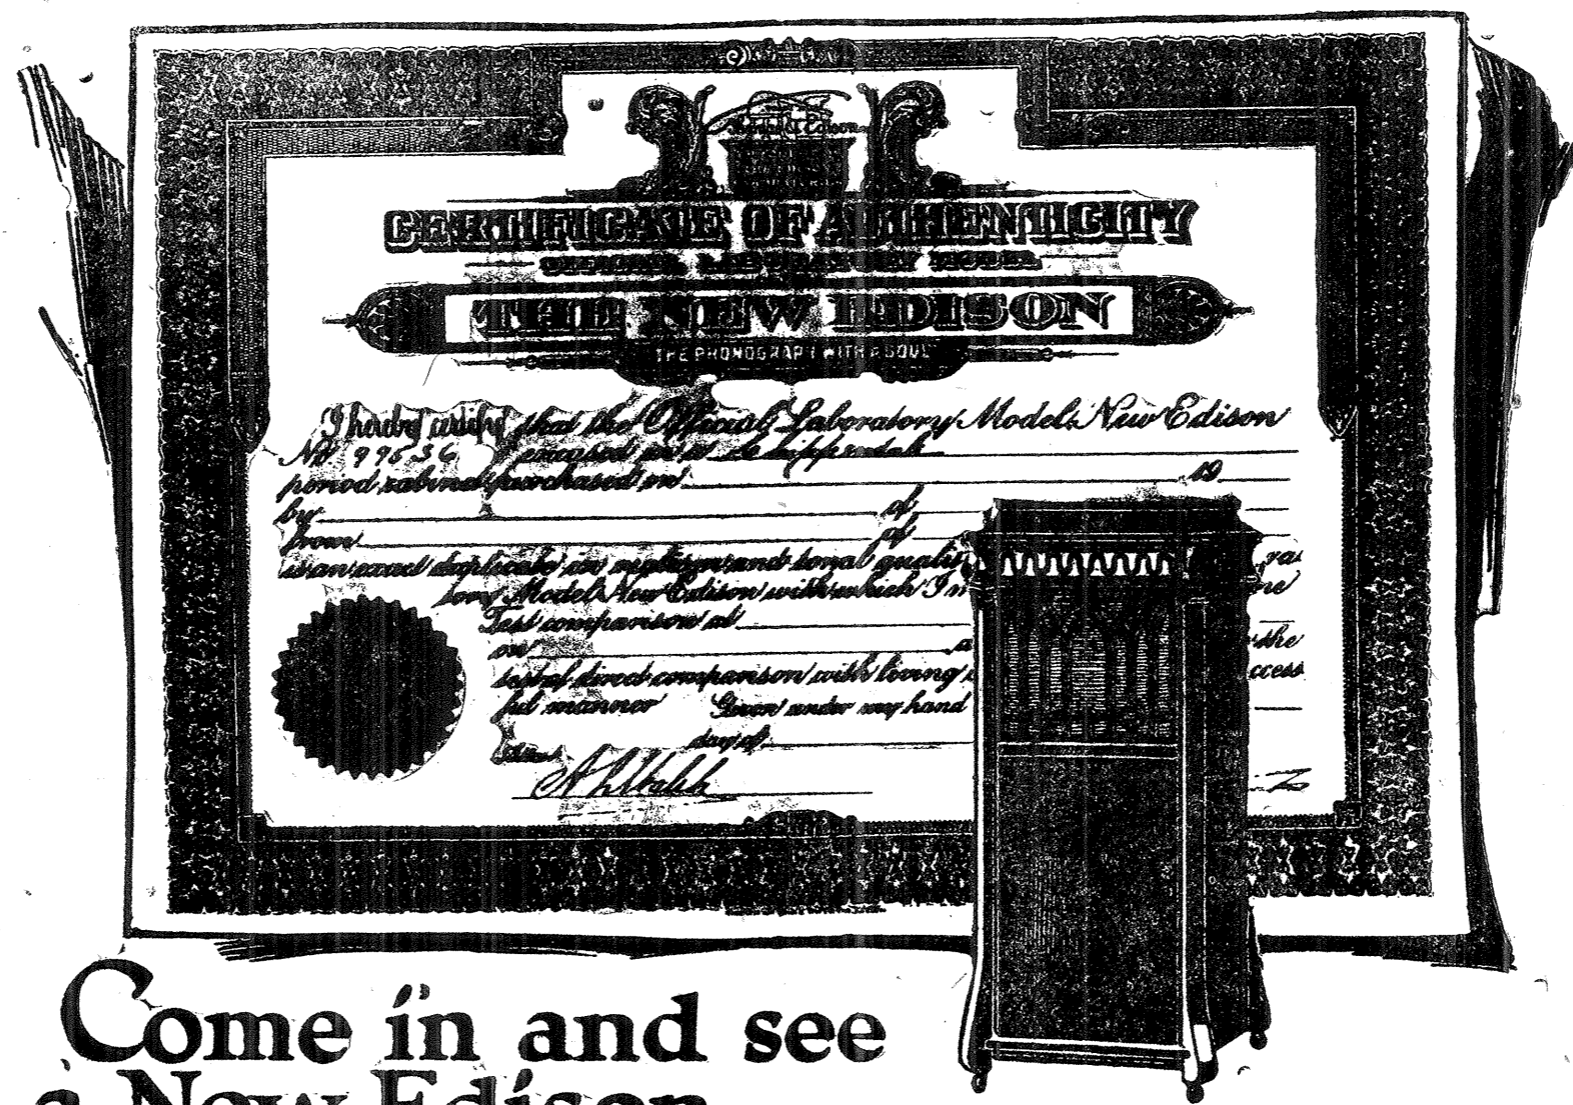 Thomas A Edison
CERTIFICATE OF AUTHENTICITY
OFFICIAL LABORATORY MODEL
THE NEW EDISON
THE PHONOGRAPH WITH A SOUL
I hereby certify that the Official Laboratory Model New Edison
No encased in a Chippendale
period cabinet purchased on 19
by of
from of
is an exact duplicate in and tonal
tory Model New Edison with which I
Test comparison at
on the
test of direct comparison with living
ful manner Given under my hand
day of
Come in and see
a New Edison